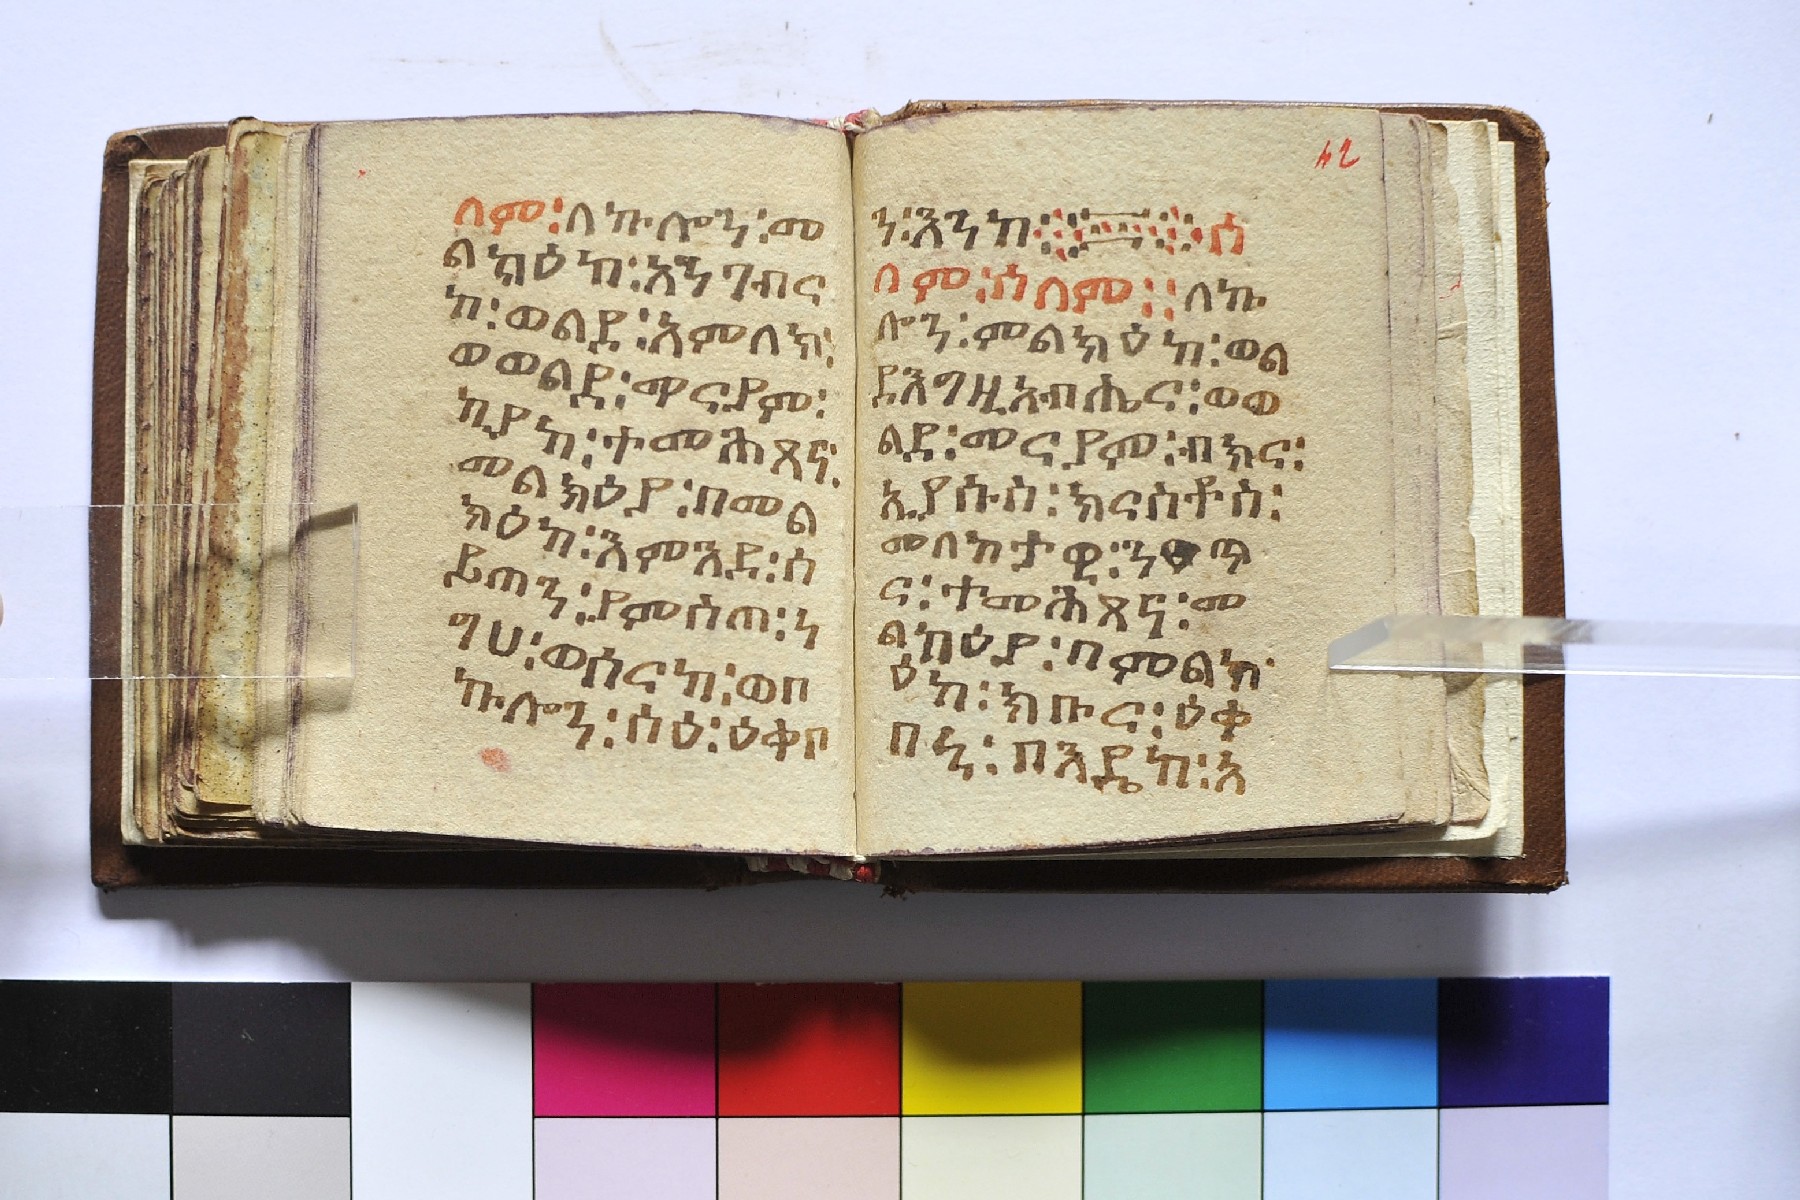 ለም፡ለኵሎን፡መ
ልክዕከ፡አንግብር
ከ፡ወልደ፡አምለክ፡
ወወልደ፡ማርያም፡
ኪያከ፡ተመሕጸነ፡
መልክዕየ፡በመል
ክዕከ፡እምእደ፡ሰ
ይጣን፡የምስጠ፡ነ
ግሀ፡ወሰርከ፡ወበ
ኵሎን፡ሰዕ፡ዕቀበ
42
ን፡እንከ፡ ሰ
ለም፡ሰለም፡፡ለኵ
ሎን፡መልክዕከ፡ወል
ደእግዚአብሔር፡ወወ
ልደ፡መርያም፡ብክር፡
ኢየሱስ፡ክርስቶስ፡
ር፡ተመሕጸነ፡መ
ልከዕየ፡በመልክ
ዕከ፡ክቡር፡ዕቀ
በኒ፡በእዴከ፡አ